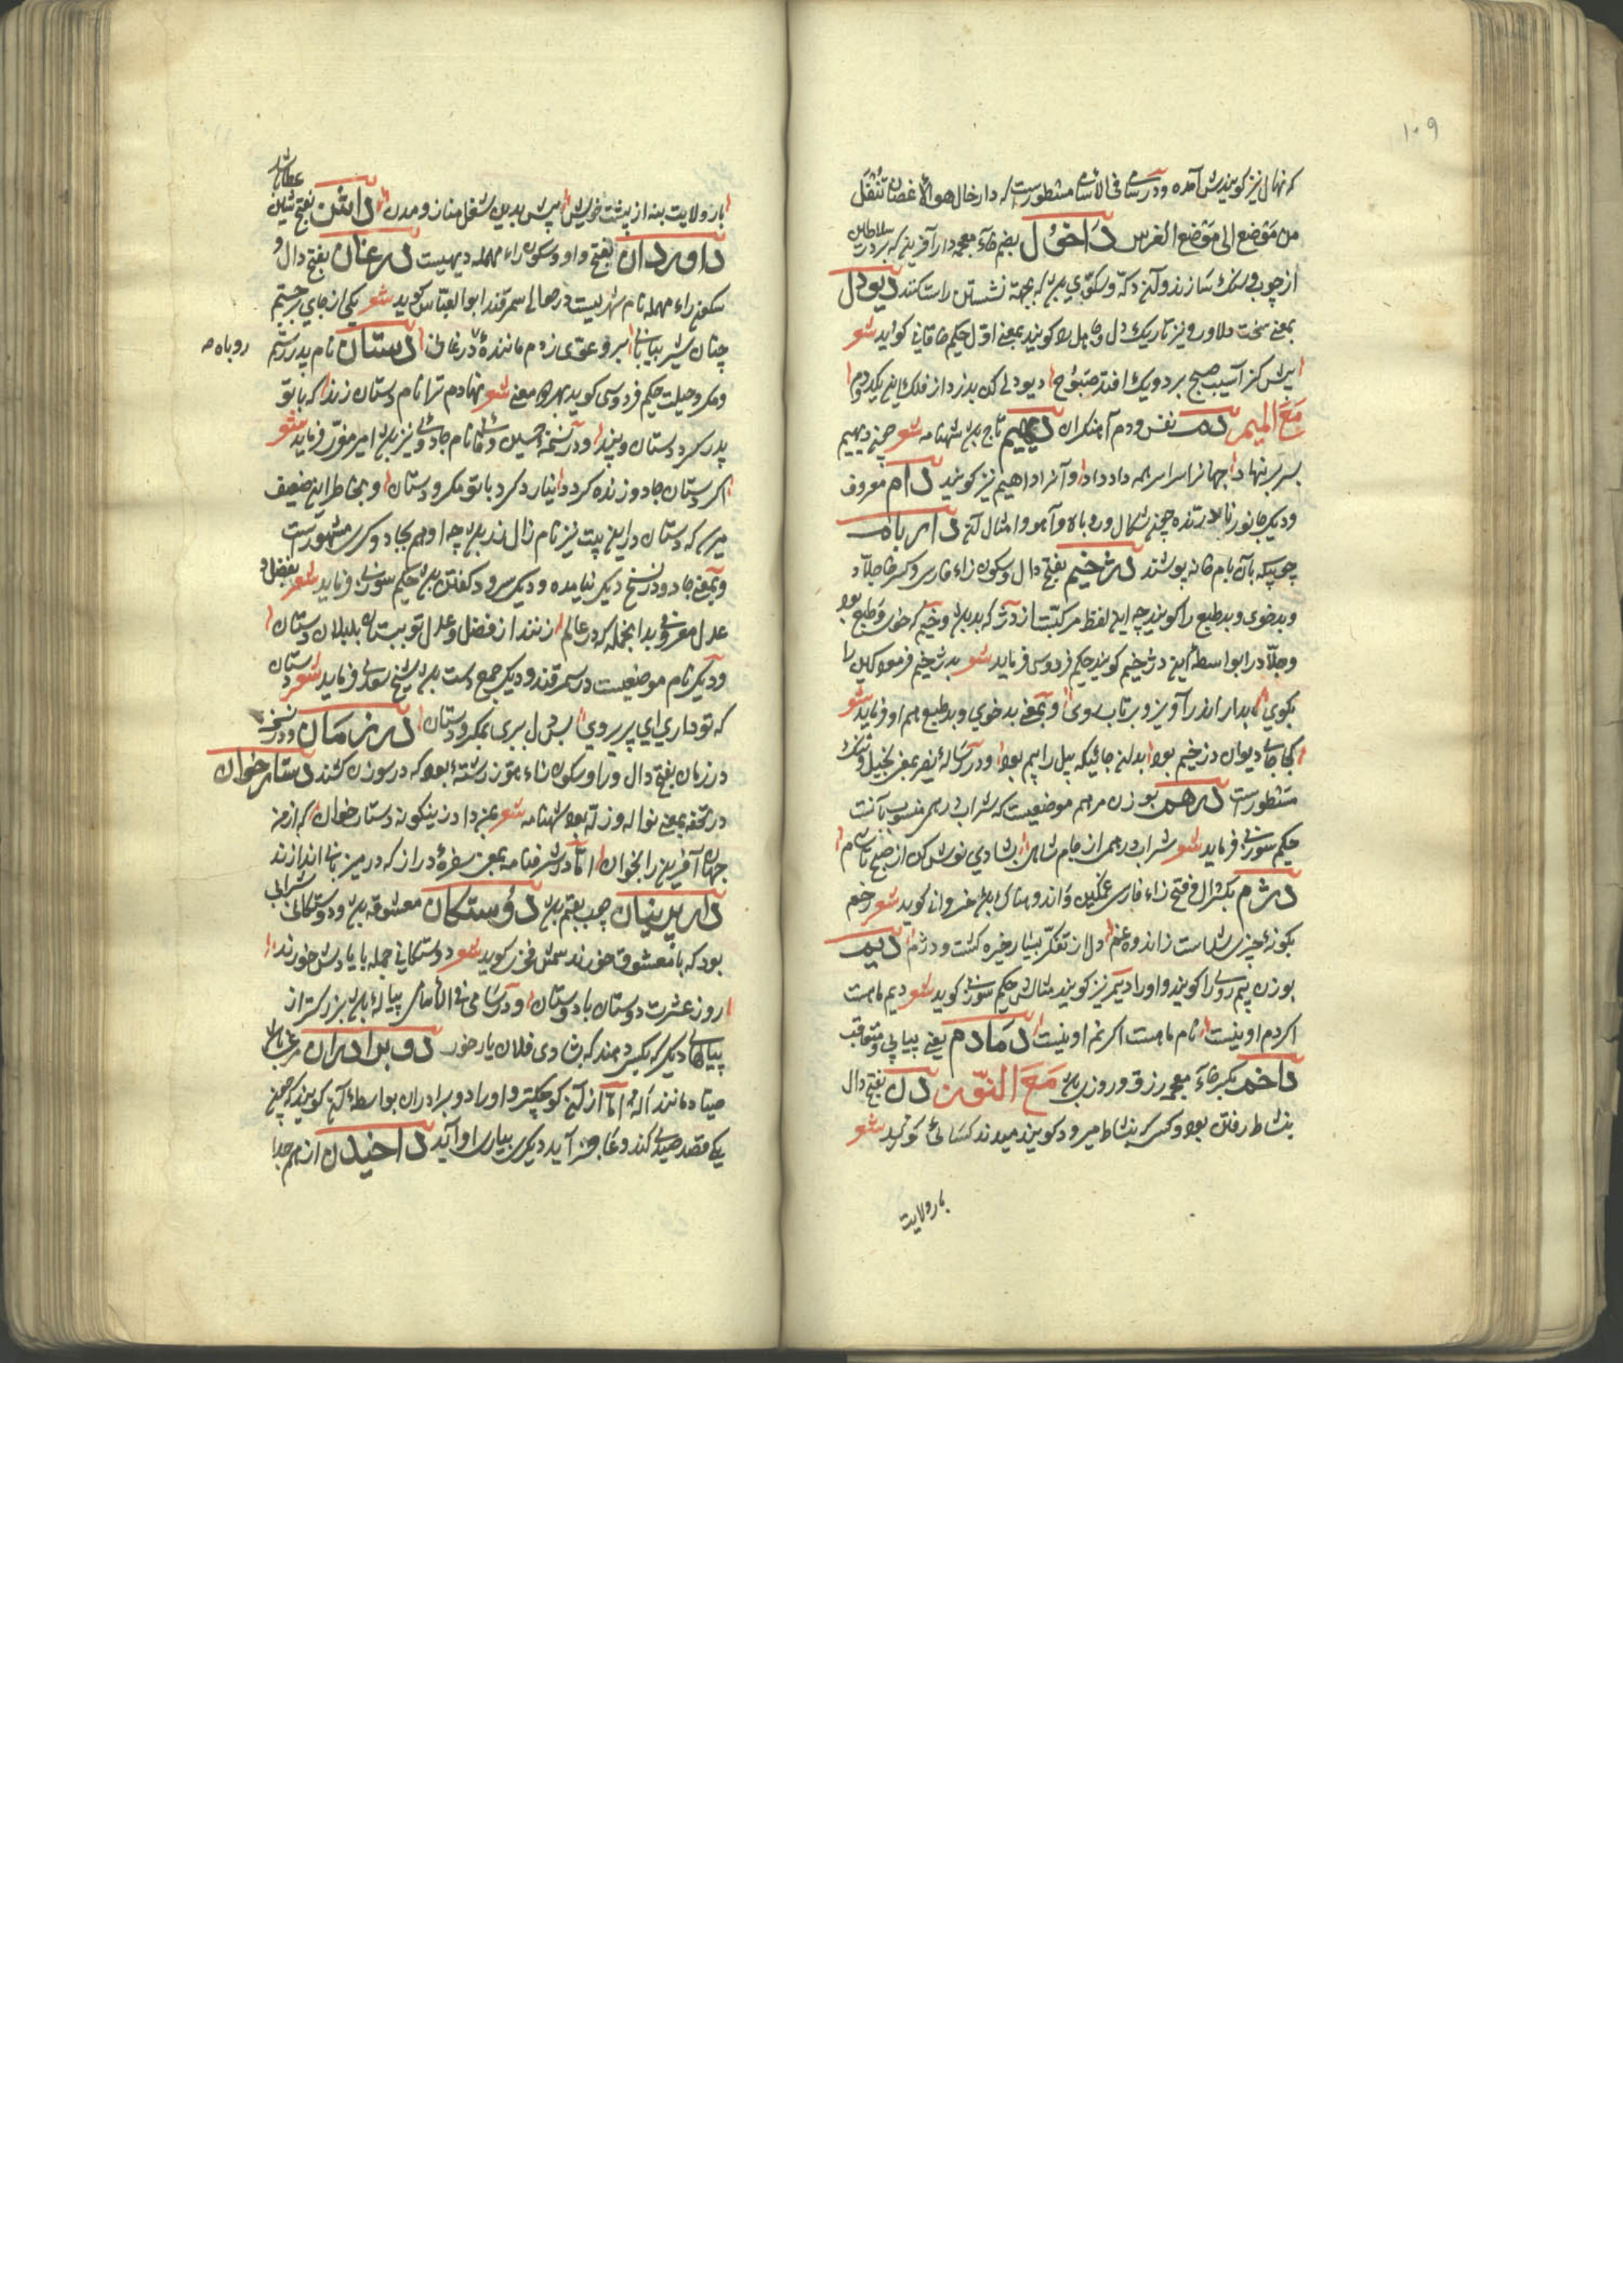 ۱۰۹
که نهال نیز گویندش آمده ودر سامی فی الاسامی مسطورست که دارخال هو الاغصان تنقل
من موضع الی موضع الغرس داخول بضم خاء معجمه دار آفرینی که بر در سلاطین
از چوب وسنک سازند وآنجه دکه وسکویی بود که بجهة نشستن راست کنند دیودل
بمعنی سخت دلاور ونیز تاریک دل وجاهل را کویند بمعنی اول حکیم خاقانی کوید شعر
صبح بر دیو
مع المیم دم نفس ودم آهنکران دیهیم تاج بود شهنامه شعر چنین دیهیم
بسر بر نهاد جهانرا سراسر همه داد داد وآنرا داهیم نیز کویند دام معروف
ودیکر جانور نادرنده چون شکال وروباه وآهو وامثال آن داربام
چوبیکه بآن بام خانه پوشند دژخیم بفتح دال وسکون زاء فارسی وکسر خا جلاد
وبدخوی وبدطبع را کویند چه این لفظ مرکبست از دژ که بد بود وخیم که خوی وطبع بود
وجلاد را بواسطهٔ این دژخیم کویند حکیم فردوسی فرماید شعر بدژخیم فرمود کاین را
بکوی بدار اندر آویز وبرتاب روی وبمعنی بدخوی وبدطبع هم او فرماید شعر
کجا جای دیوان دژخیم بود بدان جایکه پیل را بیم بود ودر رسالهٔ بمعنی بخیل
مسطورست درهم بوزن مرهم موضعیست که شراب درهمی منسوب بآنست
حکیم سوزنی فرماید شعر شراب درهمی از جام شاهی بشادی نوش کن از صبح تا شام
دژم بکسر دال وفتح زاء فارسی غمکین واندوهناک بود خسروانی کوید شعر رخم
بکونهٔ چیزی شداست از اندوه وغم دل از تفکر بسیار خیره کشت ودژم دیم
بوزن بیم روی را کویند واورا دیمر نیز کویند مثالش حکیم سوزنی کوید شعر دیم ماهست
اکر دم اونیست نام ماهست اکر نم اونیست دمادم یعنی پیاپی ومتعاقب
داخم بکسر خاء معجمه رزق وروزی بود مع النون دن بفتح دال
بنشاط رفتن بود وکسی که بنشاط میرود کویند میدند کسائی کوید شعر
بار ولایت
بار ولایت بنه از پشت خویش بیش بدین شغل مناز ومدن داشن بفتح شین عطا باشد
داوردان بفتح واو وسکون راء مهمله دیهیست درغان بفتح دال و
سکون راء مهمله نام شهریست در حوالی سمرقند ابوالعباس کوید شعر یکی از جای برجستم
چنان شیر بیابانی وغوی زدم مانندهٔ درغانی دستان نام پدر رستم
روباه
ومکر وحیلت حکیم فردوسی کوید بهر دو معنی شعر نهادم ترا نام دستان زند که با تو
پدر کرد دستان وبند ودر نسخهٔ حسین وفائی نام جادوئی نیز بود امیر معزی فرماید شعر
اکر دستان جادو زنده کردد نیارد کرد با تو مکر ودستان وبخاطر این ضعیف
میرسد که دستان در این بیت نیز نام زال زر بود چه او هم بجادوکری مشهورست
وبمعنی جادو در نسخ دیکر نیامده ودیکر سرود کفتن بود حکیم سوزنی فرماید شعر بفضل و
عدل معروفی بدانجمله که در عالم زنند از فضل وعدل تو ببستان بلبلان دستان
ودیکر نام موضعیست در سمرقند ودیکر جمع دست بود شیخ سعدی فرماید شعر دستان
که تو داری ای پری روی بس دل ببری بمکر ودستان درزمان ودر نسخهٔ
درزبان بفتح دال ورا وسکون زاء هوز رشتهٔ بود که در سوزن کشند دستارخوان
در تحفه بمعنی نواله وزله بود شهنامه شعر دستار خوان
جهان آفرین را بخوان اما در شرفنامه بمعنی سفرهٔ دراز که در میزبانی اندازند
دارپرنیان چوب بقم بود دوستکان معشوقه بود ودوستکانی شرابی
بود که با معشوق خورند شمس فخری کوید شعر دوستکانی جمله با یادش خورند
روز عشرت دوستان با دوستان ودر سامی فی الاسامی پیالهٔ بود بزرکتر از
پیالهای دیکر که بکسی دهند که بشادی فلان یار خور دوبرادران مرغی باشد
صیاد مانند آله اما از آن کوچکتر واورا دوبرادران بواسطهٔ آن کویند که چون
یکی قصد صیدی کند وعاجز آید دیکری بیاری او آید داخیدن از هم جدا